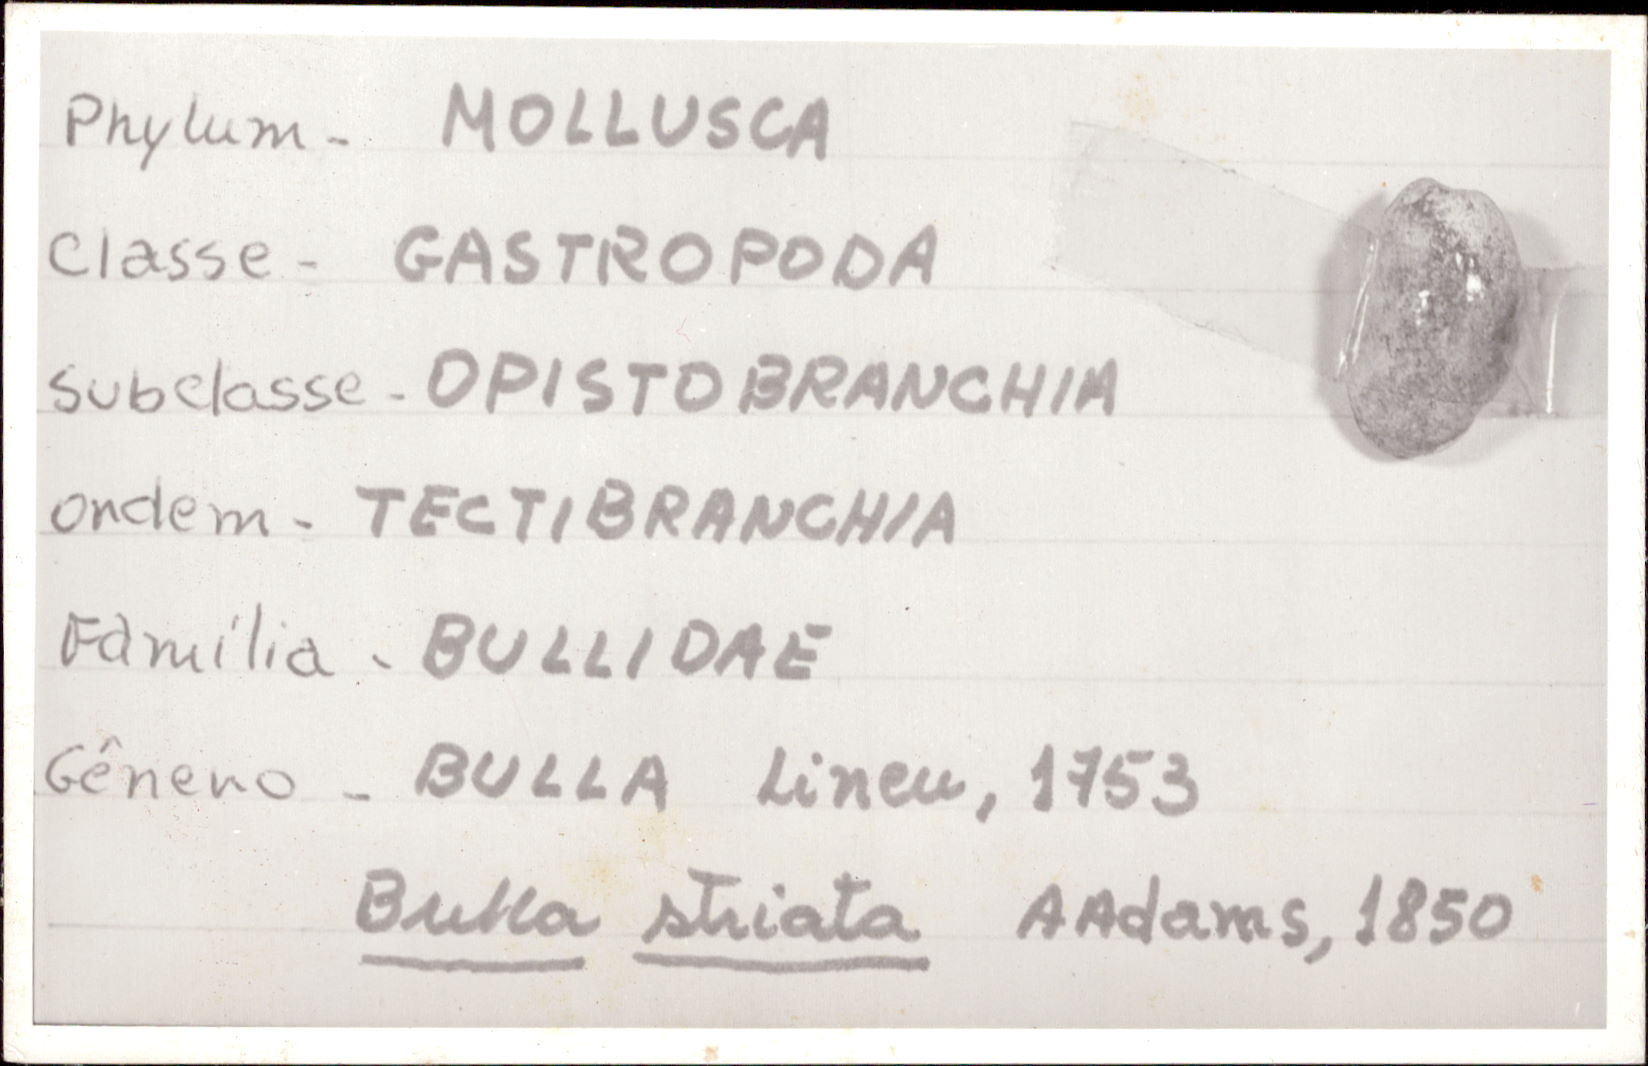 Phylum - MOLLUSCA
Classe - GASTROPODA
Subclasse - OPISTOBRANCHIA
Ordem - TECTIBRANCHIA
Família - BULLIDAE
Gênero - BULLA Lineu, 1753
Bulla striata AAdams, 1850